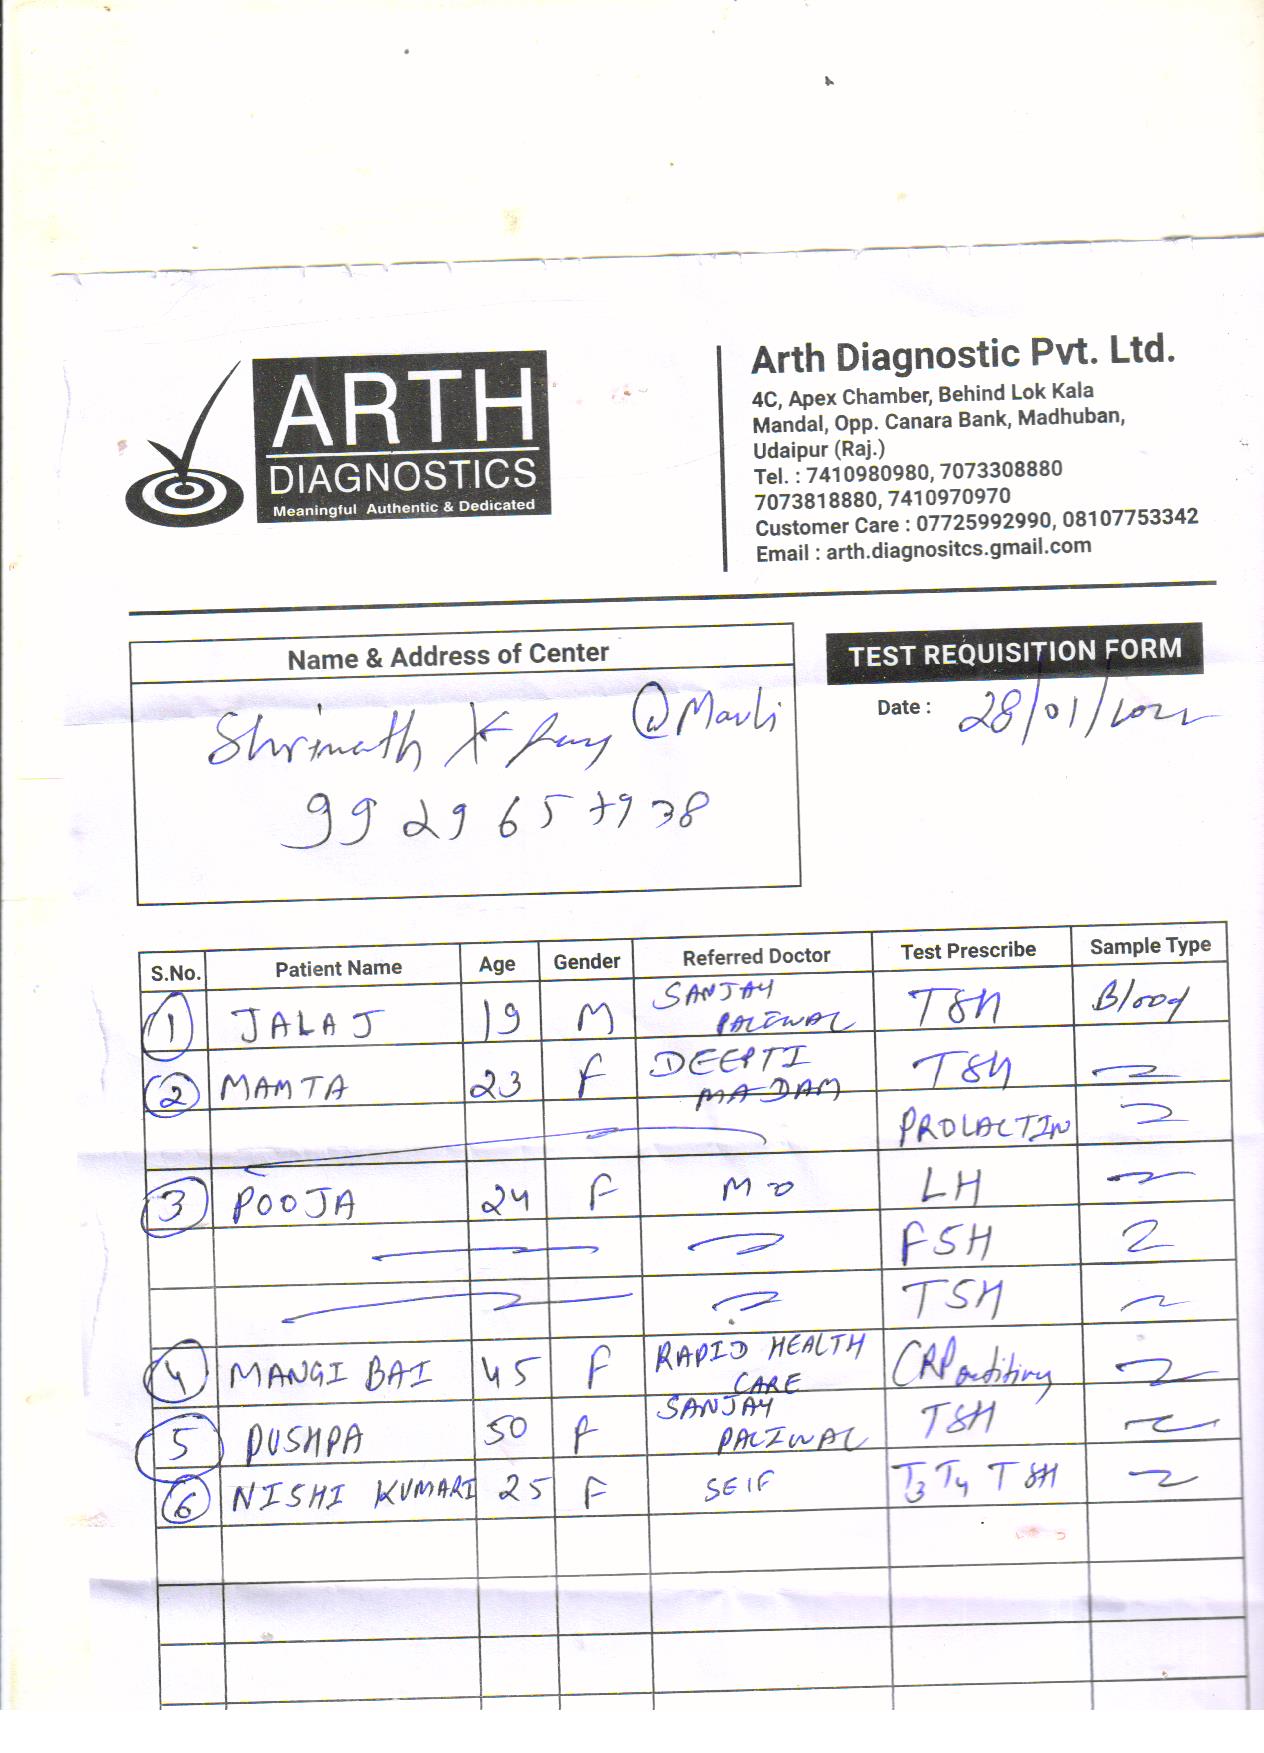 ARTH
DIAGNOSTICS
Meaningful Authentic & Dedicated
Arth Diagnostic Pvt. Ltd.
4C, Apex Chamber, Behind Lok Kala
Mandal, Opp. Canara Bank, Madhuban,
Udaipur (Raj.)
Tel. : 7410980980, 7073308880
7073818880, 7410970970
Customer Care : 07725992990, 08107753342
Email : arth.diagnositcs.gmail.com
Name & Address of Center
Shrinath X Ray @ Mavli
9929657938
TEST REQUISITION FORM
Date : 28/01/2022
S.No. Patient Name Age Gender Referred Doctor Test Prescribe Sample Type
1 JALAJ 19 M SANJAY PALIWAL TSH Blood
2 MAMTA 23 F DEEPTI MADAM TSH
PROLACTIN
3 POOJA 24 F MO LH
FSH
TSH
4 MANGI BAI 45 F RAPID HEALTH CARE CRP
5 PUSHPA 50 F SANJAY PALIWAL TSH
6 NISHI KUMARI 25 F SELF T3 T4 TSH